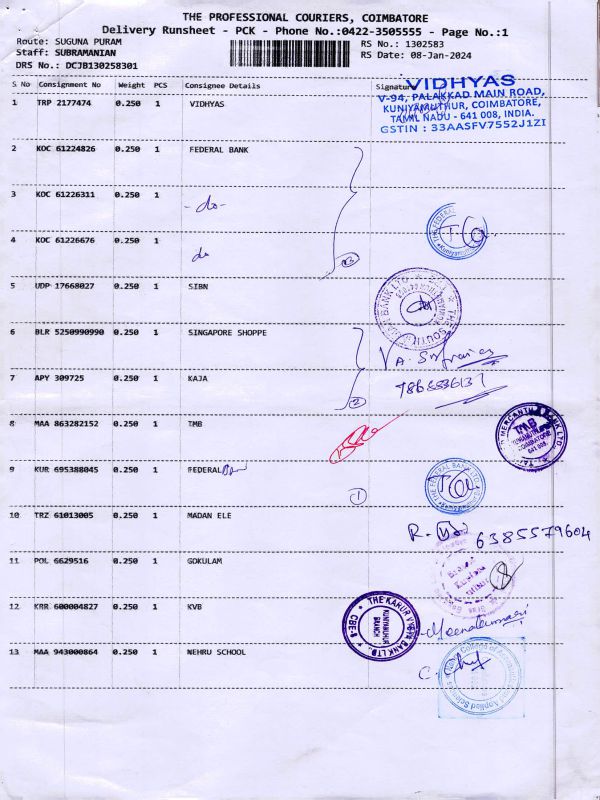 THE PROFESSIONAL COURIERS, COIMBATORE
Delivery Runsheet - PCK - Phone No.:0422-3505555 - Page No.:1
Route: SUGUNA PURAM RS No.: 1302583
Staff: SUBRAMANIAN RS Date: 08-Jan-2024
DRS No.: DCJB130258301
S No Consignment No Weight PCS Consignee Details Signature
VIDHYAS
V-94, PALAKKAD MAIN ROAD,
KUNIYAMUTHUR, COIMBATORE,
TAMIL NADU - 641 008, INDIA.
GSTIN : 33AASFV7552J1ZI
1 TRP 2177474 0.250 1 VIDHYAS
2 KOC 61224826 0.250 1 FEDERAL BANK
3 KOC 61226311 0.250 1 -do-
4 KOC 61226676 0.250 1 do
3
5 UDP 17668027 0.250 1 SIBN
6 BLR 5250990990 0.250 1 SINGAPORE SHOPPE
7 APY 309725 0.250 1 KAJA
2
8 MAA 863282152 0.250 1 TMB
TMB
COIMBATORE
641 008
9 KUR 695388045 0.250 1 FEDERAL
1
10 TRZ 61013005 0.250 1 MADAN ELE
6385579604
11 POL 6629516 0.250 1 GOKULAM
12 KRR 600004827 0.250 1 KVB
THE KARUR VYSYA BANK LTD. CBE-8
KUNIYAMUTHUR
BRANCH
13 MAA 943000864 0.250 1 NEHRU SCHOOL